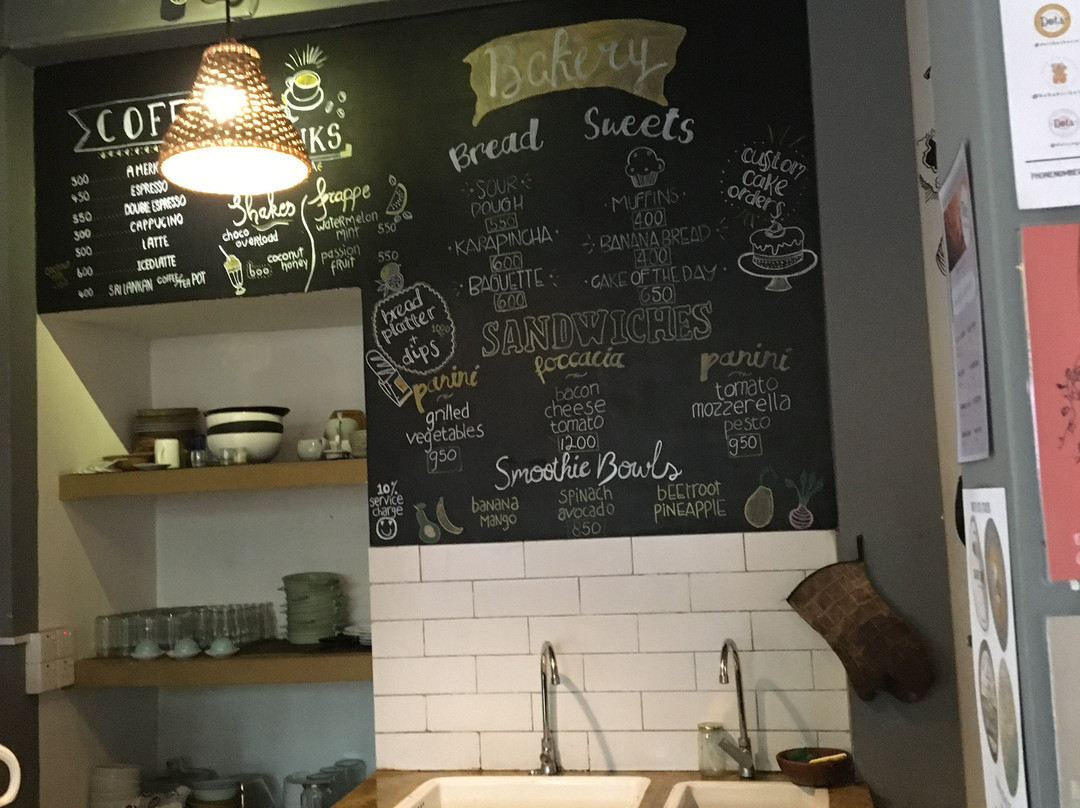 COFF
NKS
500 AMERI
450 ESPRESSO
550 DOUBLE ESPRESSO
500 CAPPUCINO
500 LATTE
600 ICED LATTE
400 SRI LANKAN COFFEE/TEA POT
Shakes
choco
overload
coconut
honey
600
frappe
watermelon
mint
550
passion
fruit
550
Bakery
Bread
SOUR
DOUGH
550
KARAPINCHA
600
BAGUETTE
600
Sweets
MUFFINS
400
BANANA BREAD
400
CAKE OF THE DAY
650
custom
cake
orders
bread
platter
+
dips
SANDWICHES
panini
grilled
vegetables
950
foccacia
bacon
cheese
tomato
1200
panini
tomato
mozzerella
pesto
950
Smoothie Bowls
banana
Mango
spinach
avocado
850
bEETroot
PINEAPPLE
10%
service
charge
Dots